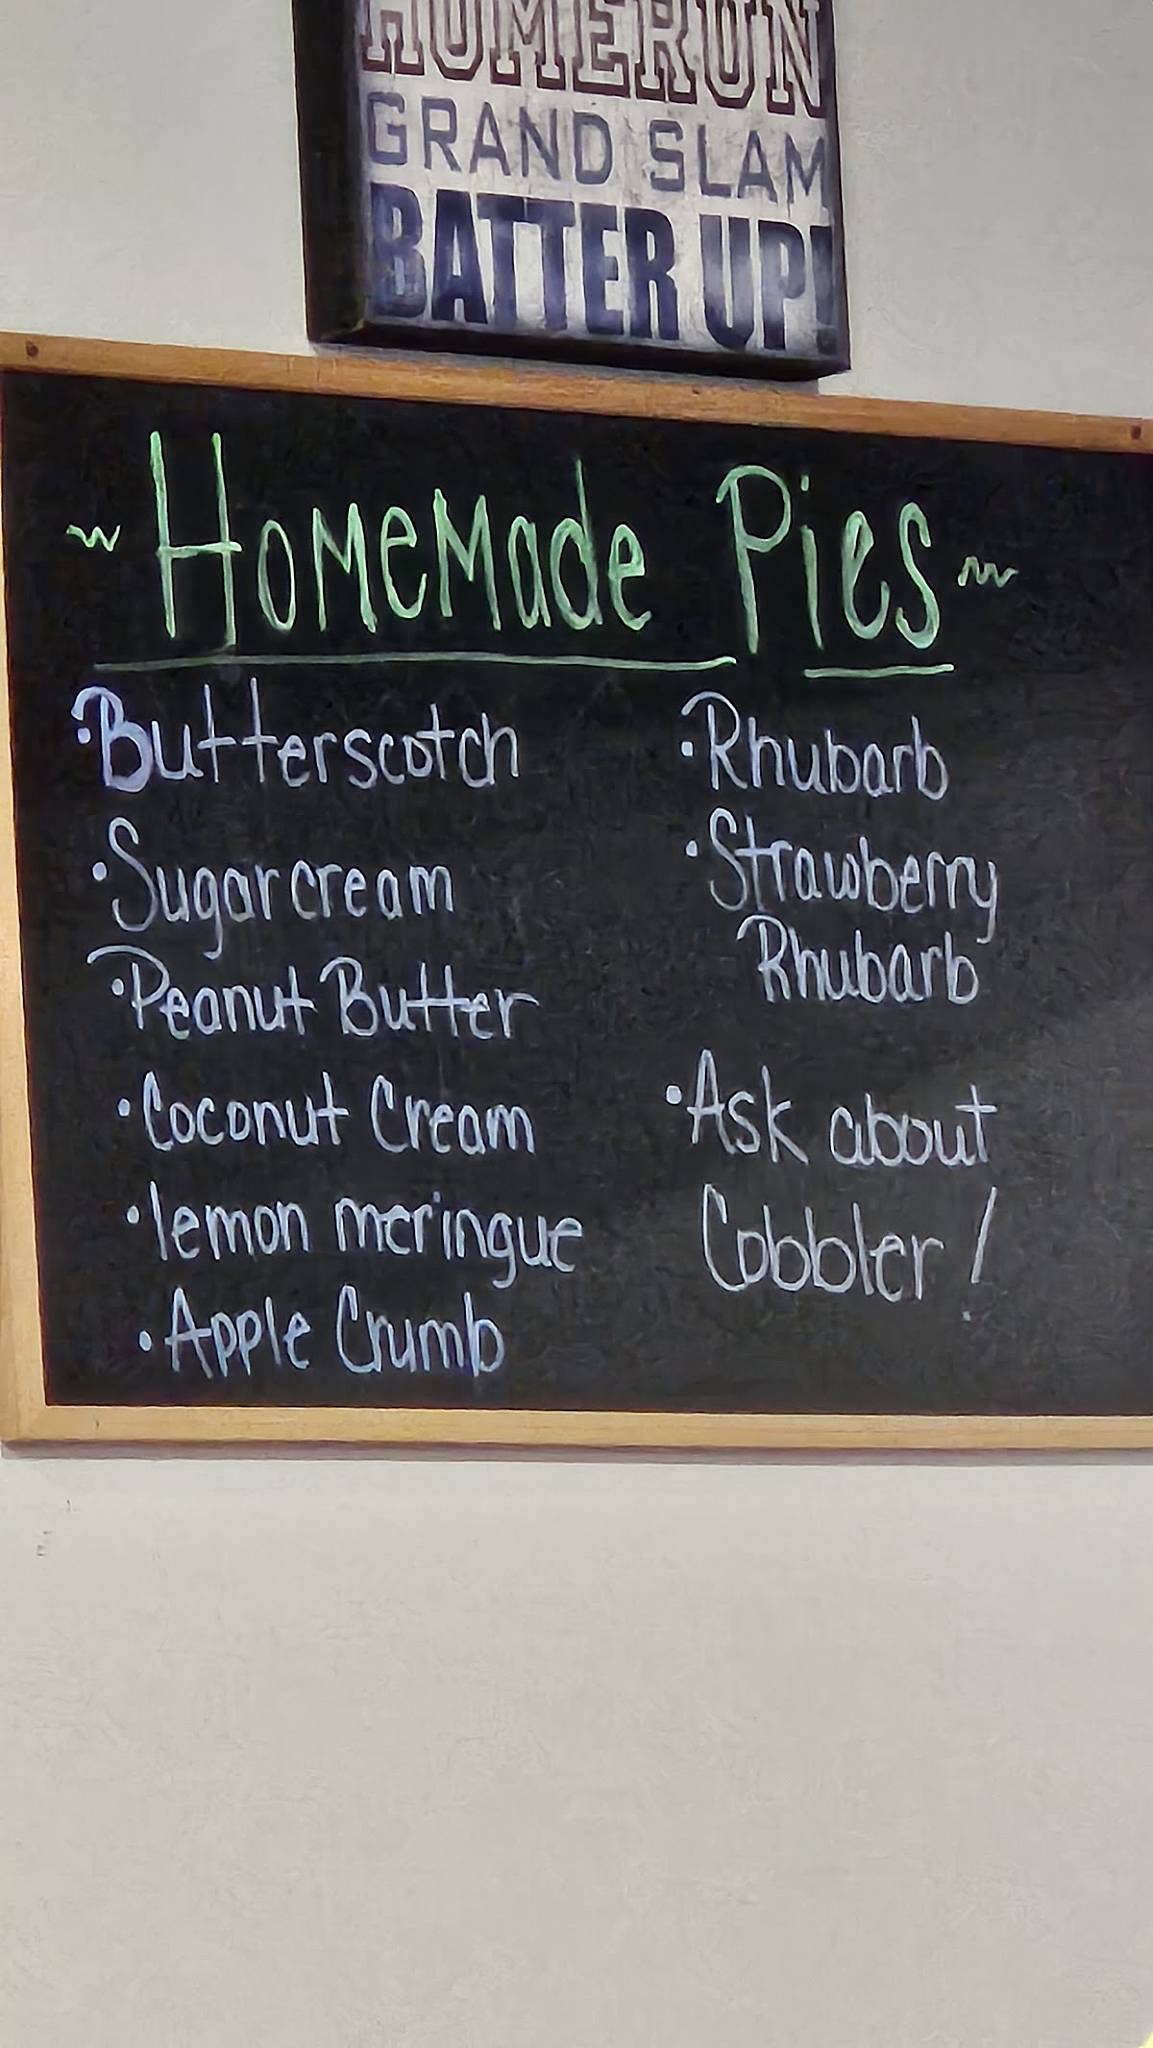 HOMERUN
GRAND SLAM
BATTER UP!
~ Homemade Pies ~
·Butterscotch
·Sugar cream
·Peanut Butter
·Coconut Cream
·lemon meringue
·Apple Crumb
·Rhubarb
·Strawberry
Rhubarb
·Ask about
Cobbler!